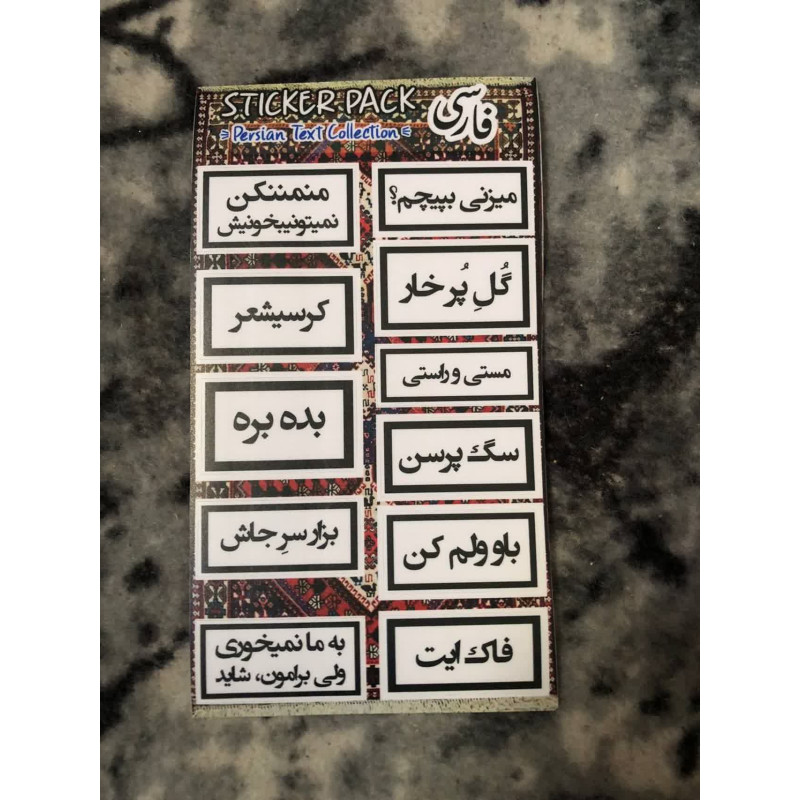 STICKER PACK
Persian Text Collection
فارسی
میزنی بپیچم؟
منمننکن
نمیتونیبخونیش
گُلِ پُر خار
کرسیشعر
مستی و راستی
بده بره
سگ پرسن
بزار سرِ جاش
باو ولم کن
به ما نمیخوری
ولی برامون، شاید
فاک ایت